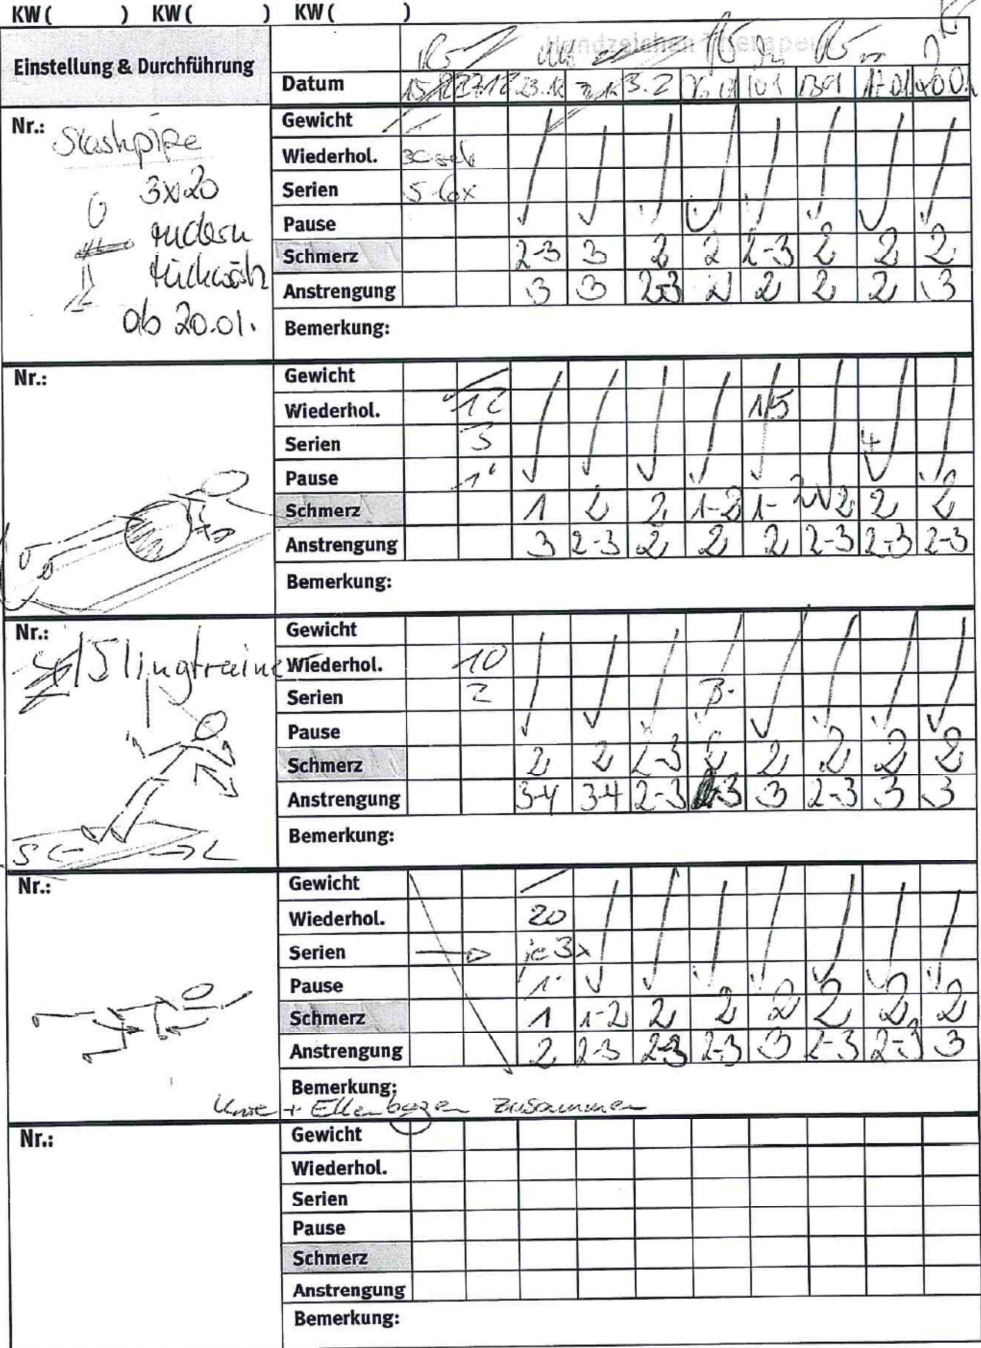 KW ( ) KW ( ) KW ( )
Handzeichen Therapeut
Einstellung & Durchführung
Datum 23.12 3.2 10.1 13.01 17.01 20.01
Nr.: Slashpipe
3x20
rudern
rückwärts
ab 20.01.
Gewicht
Wiederhol. 30 sek
Serien 5-6x
Pause
Schmerz 2-3 3 2 2 2-3 2 2 2
Anstrengung 3 3 2-3 2 2 2 2 3
Bemerkung:
Nr.:
Gewicht
Wiederhol. 12 15
Serien 3 4
Pause 1'
Schmerz 1 2 2 1-2 1-2 2 2 2
Anstrengung 3 2-3 2 2 2 2-3 2-3 2-3
Bemerkung:
Nr.:
Slingtrainer
Gewicht
Wiederhol. 10
Serien 2 3
Pause
Schmerz 2 2 2-3 2 2 2 2 2
Anstrengung 3-4 3-4 2-3 2-3 3 2-3 3 3
Bemerkung:
Nr.:
Gewicht
Wiederhol. 20
Serien je 3x
Pause 1'
Schmerz 1 1-2 2 2 2 2 2 2
Anstrengung 2 2-3 2-3 2-3 3 2-3 2-3 3
Bemerkung:
Knie + Ellenbogen zusammen
Nr.:
Gewicht
Wiederhol.
Serien
Pause
Schmerz
Anstrengung
Bemerkung: